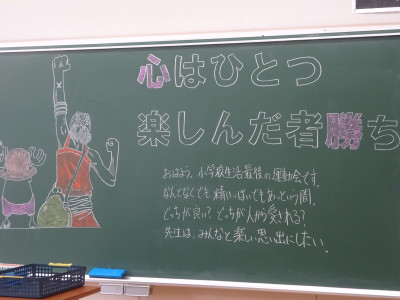 心はひとつ
楽しんだ者勝ち
おはよう。小学校生活最後の運動会です。
なんとなくでも精いっぱいでもあっという間。
どっちが良い?どっちが人から愛される?
先生は、みんなと楽しい思い出にしたい。